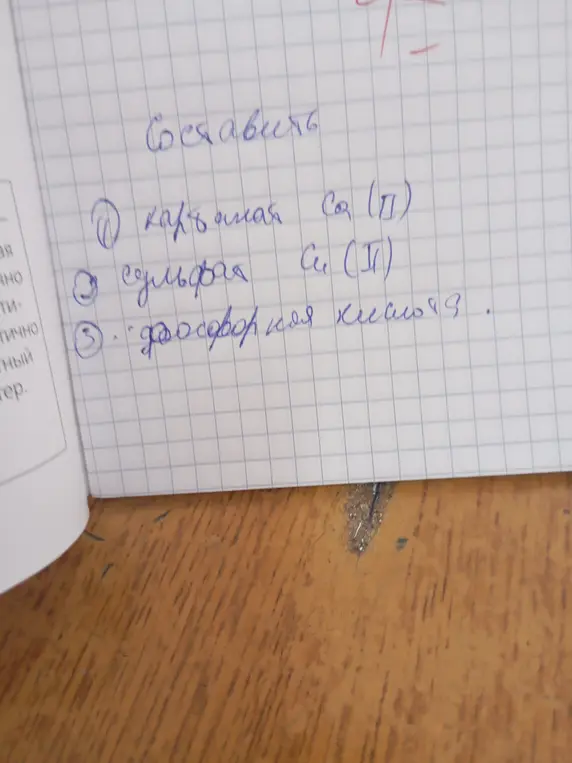 Составить
① карбонат Ca (II)
② сульфат Cu (II)
③ фосфорная кислота.
ая
но
ти-
тично
ный
тер.